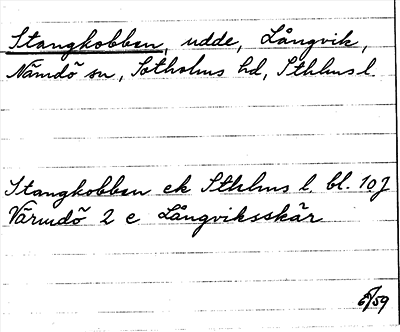 Stangkobben, udde, Långvik,
Nämdö sn, Sotholms hd, Sthlms l.
Stangkobben ek Sthlms l. bl. 10J
Värmdö 2 e Långviksskär
6/59